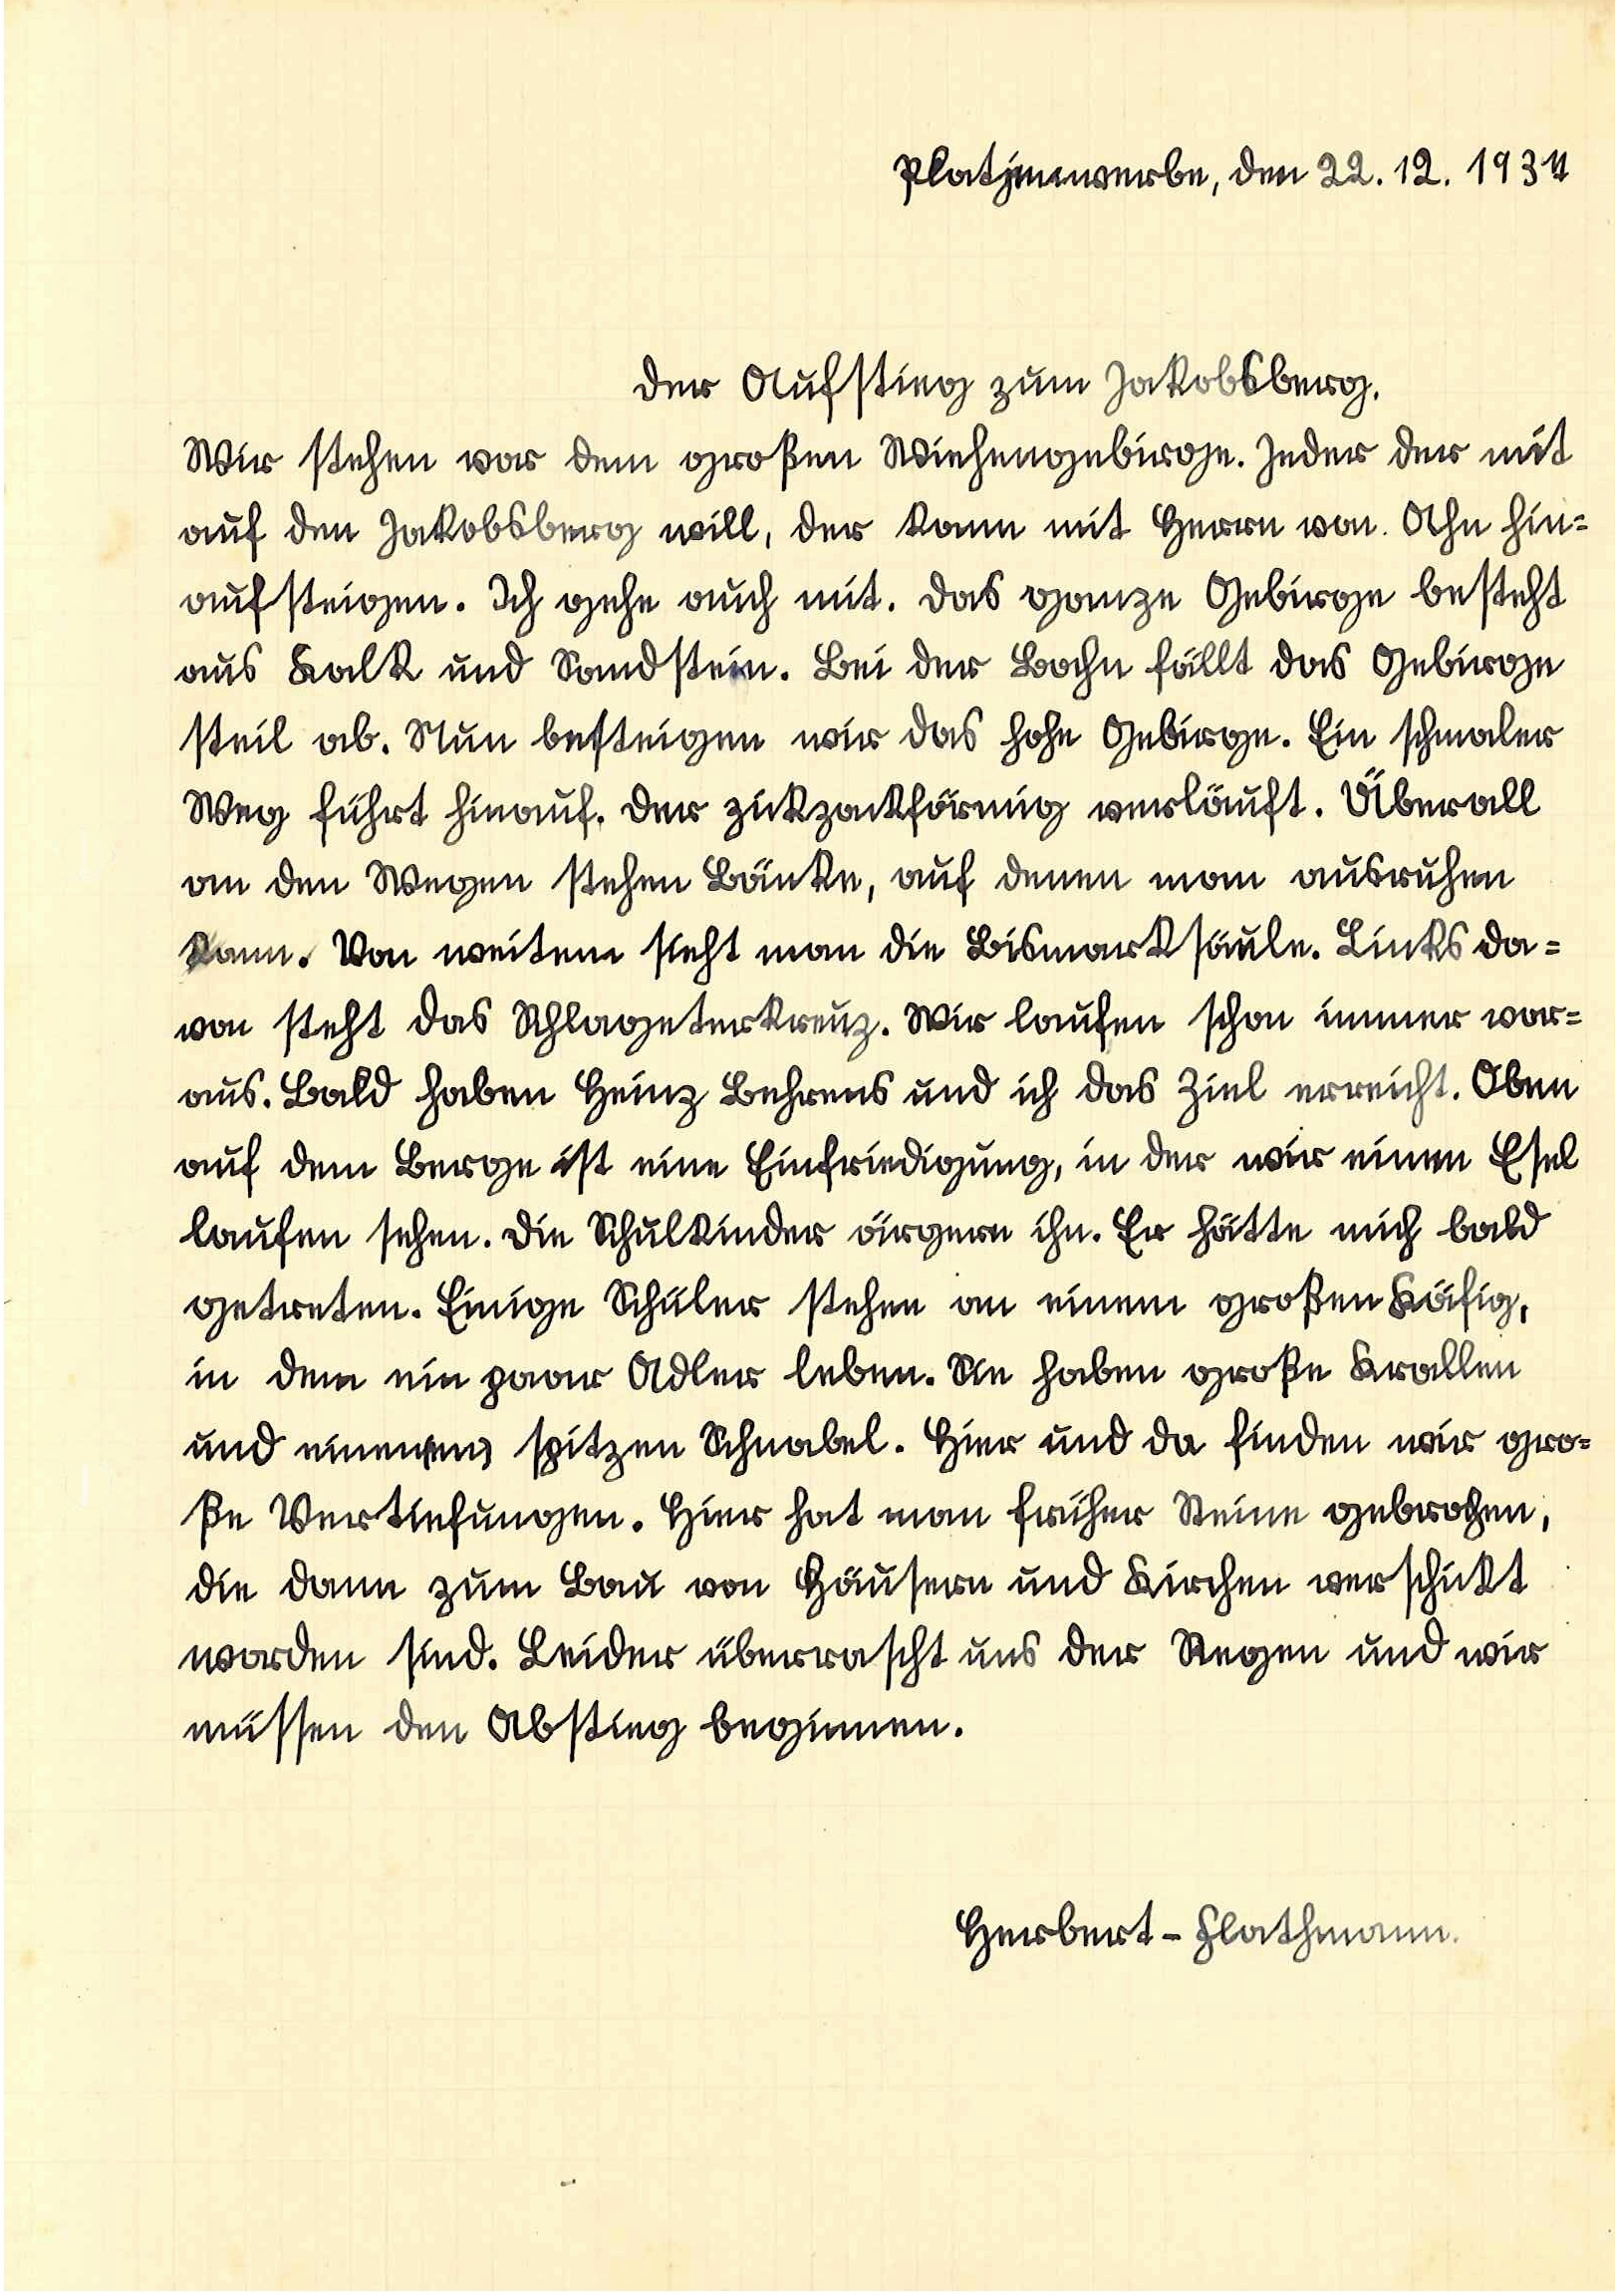 Platjenwerbe, den 22. 12. 1934
Der Aufstieg zum Jakobsberg.
Wir stehen vor dem großen Wiehengebirge. Jeder der mit
auf den Jakobsberg will, der kann mit Herrn von Ahn hin=
aufsteigen. Ich gehe auch mit. Das ganze Gebirge besteht
aus Kalk und Sandstein. Bei der Bahn fällt das Gebirge
steil ab. Nun besteigen wir das hohe Gebirge. Ein schmaler
Weg führt hinauf. Der zickzackförmig verläuft. Überall
an den Wegen stehen Bänke, auf denen man ausruhen
kann. Von weitem sieht man die Bismarksäule. Links da=
von steht das Schlageterkreuz. Wir laufen schon immer vor=
aus. Bald haben Heinz Behrens und ich das Ziel erreicht. Oben
auf dem Berge ist eine Einfriedigung, in der wir einen Esel
laufen sehen. Die Schulkinder ärgern ihn. Er hätte mich bald
getreten. Einige Schüler stehen an einem großen Käfig,
in dem ein paar Adler leben. Sie haben große Krallen
und einen(en) spitzen Schnabel. Hier und da finden wir gro=
ße Vertiefungen. Hier hat man früher Steine gebrochen,
die dann zum Bau von Häusern und Kirchen verschickt
worden sind. Leider überrascht uns der Regen und wir
müssen den Abstieg beginnen.
Herbert - Flathmann.